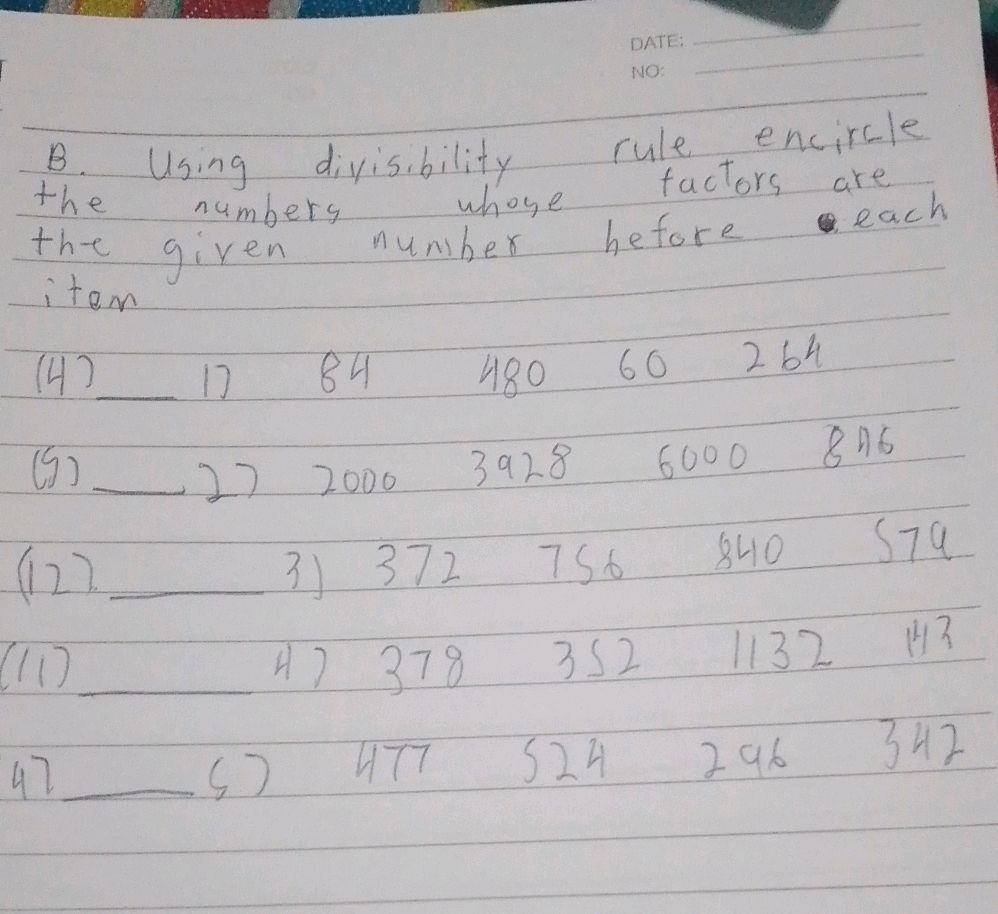 DATE:
NO:
B. Using divisibility rule encircle
the numbers whose factors are
the given number before each
item
(4) ___ 1) 84 480 60 264
2) 2000 3928 6000
(12) ___ 3) 372 756 840 579
(11) ___ 4) 378 352 1132 143
4) ___ 5) 477 524 296 342